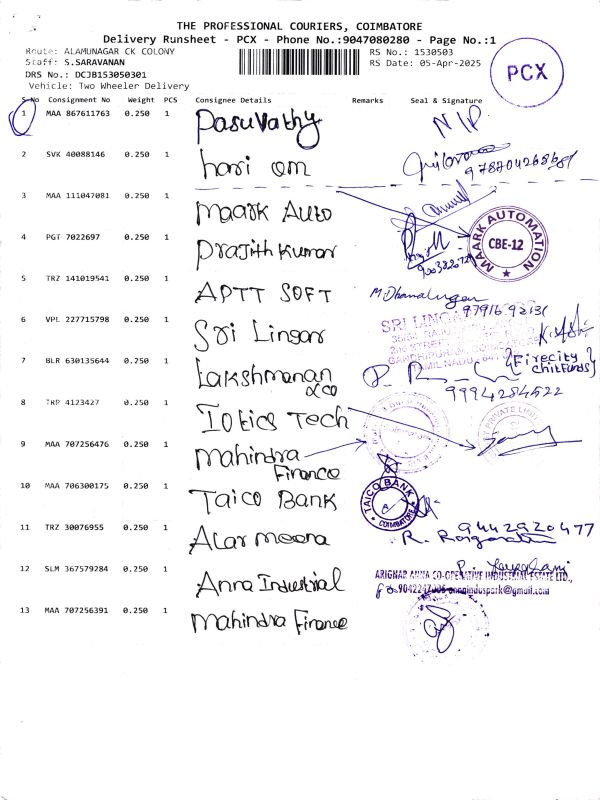 THE PROFESSIONAL COURIERS, COIMBATORE
Delivery Runsheet - PCX - Phone No.:9047080280 - Page No.:1
Route: ALAMUNAGAR CK COLONY
RS No.: 1530503
Staff: S.SARAVANAN
RS Date: 05-Apr-2025
DRS No.: DCJB153050301
PCX
Vehicle: Two Wheeler Delivery
S.No Consignment No Weight PCS Consignee Details Remarks Seal & Signature
1 MAA 867611763 0.250 1 Pasuvathy N/P
2 SVK 40088146 0.250 1 hari om 9787042686
3 MAA 111047081 0.250 1 Maark Auto
MAARK AUTOMATION CBE-12
4 PGT 7022697 0.250 1 Prajith Kumar
5 TRZ 141019541 0.250 1 APTT SOFT 9791692131
6 VPL 227715798 0.250 1 Sri Lingar
SRI LINGA
7 BLR 630135644 0.250 1 Lakshmanan &co [Firecity Chitfunds]
9994284522
8 TRP 4123427 0.250 1 Iotics Tech
PRIVATE LIMI
9 MAA 707256476 0.250 1 Mahindra Finance
10 MAA 706300175 0.250 1 Taico Bank
TAICO BANK COIMBATORE
11 TRZ 30076955 0.250 1 Alar meena 9442920477
12 SLM 367579284 0.250 1 Anna Industrial
ARIGNAR ANNA CO-OPERATIVE INDUSTRIAL ESTATE LTD.,
annainduspark@gmail.com
13 MAA 707256391 0.250 1 Mahindra Finance